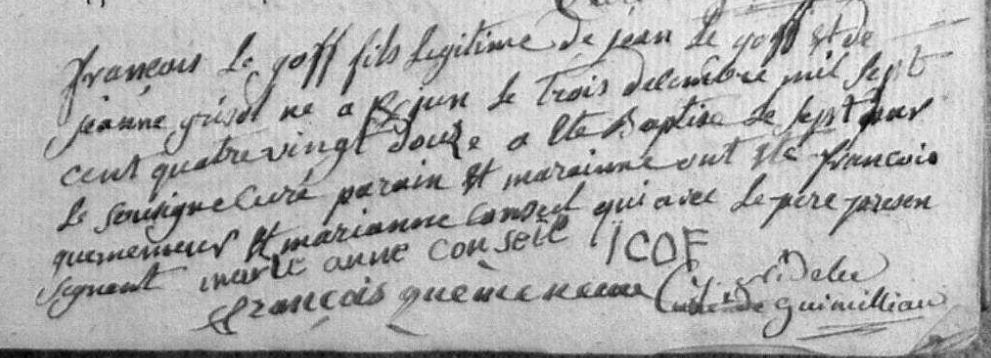 françois Le goff fils Legitime de jean Le goff Et de
jeanne grisol né a Le trois decembre mil sept
cent quatre vingt douze a Ete Baptisé Le sept par
Le sousigné Curé parain Et maraine ont Eté francois
quemeneur Et marianne Conseil qui avec Le pere presen
segnent marie anne conseil ICOF
françois quemeneur Curé de guimilliau